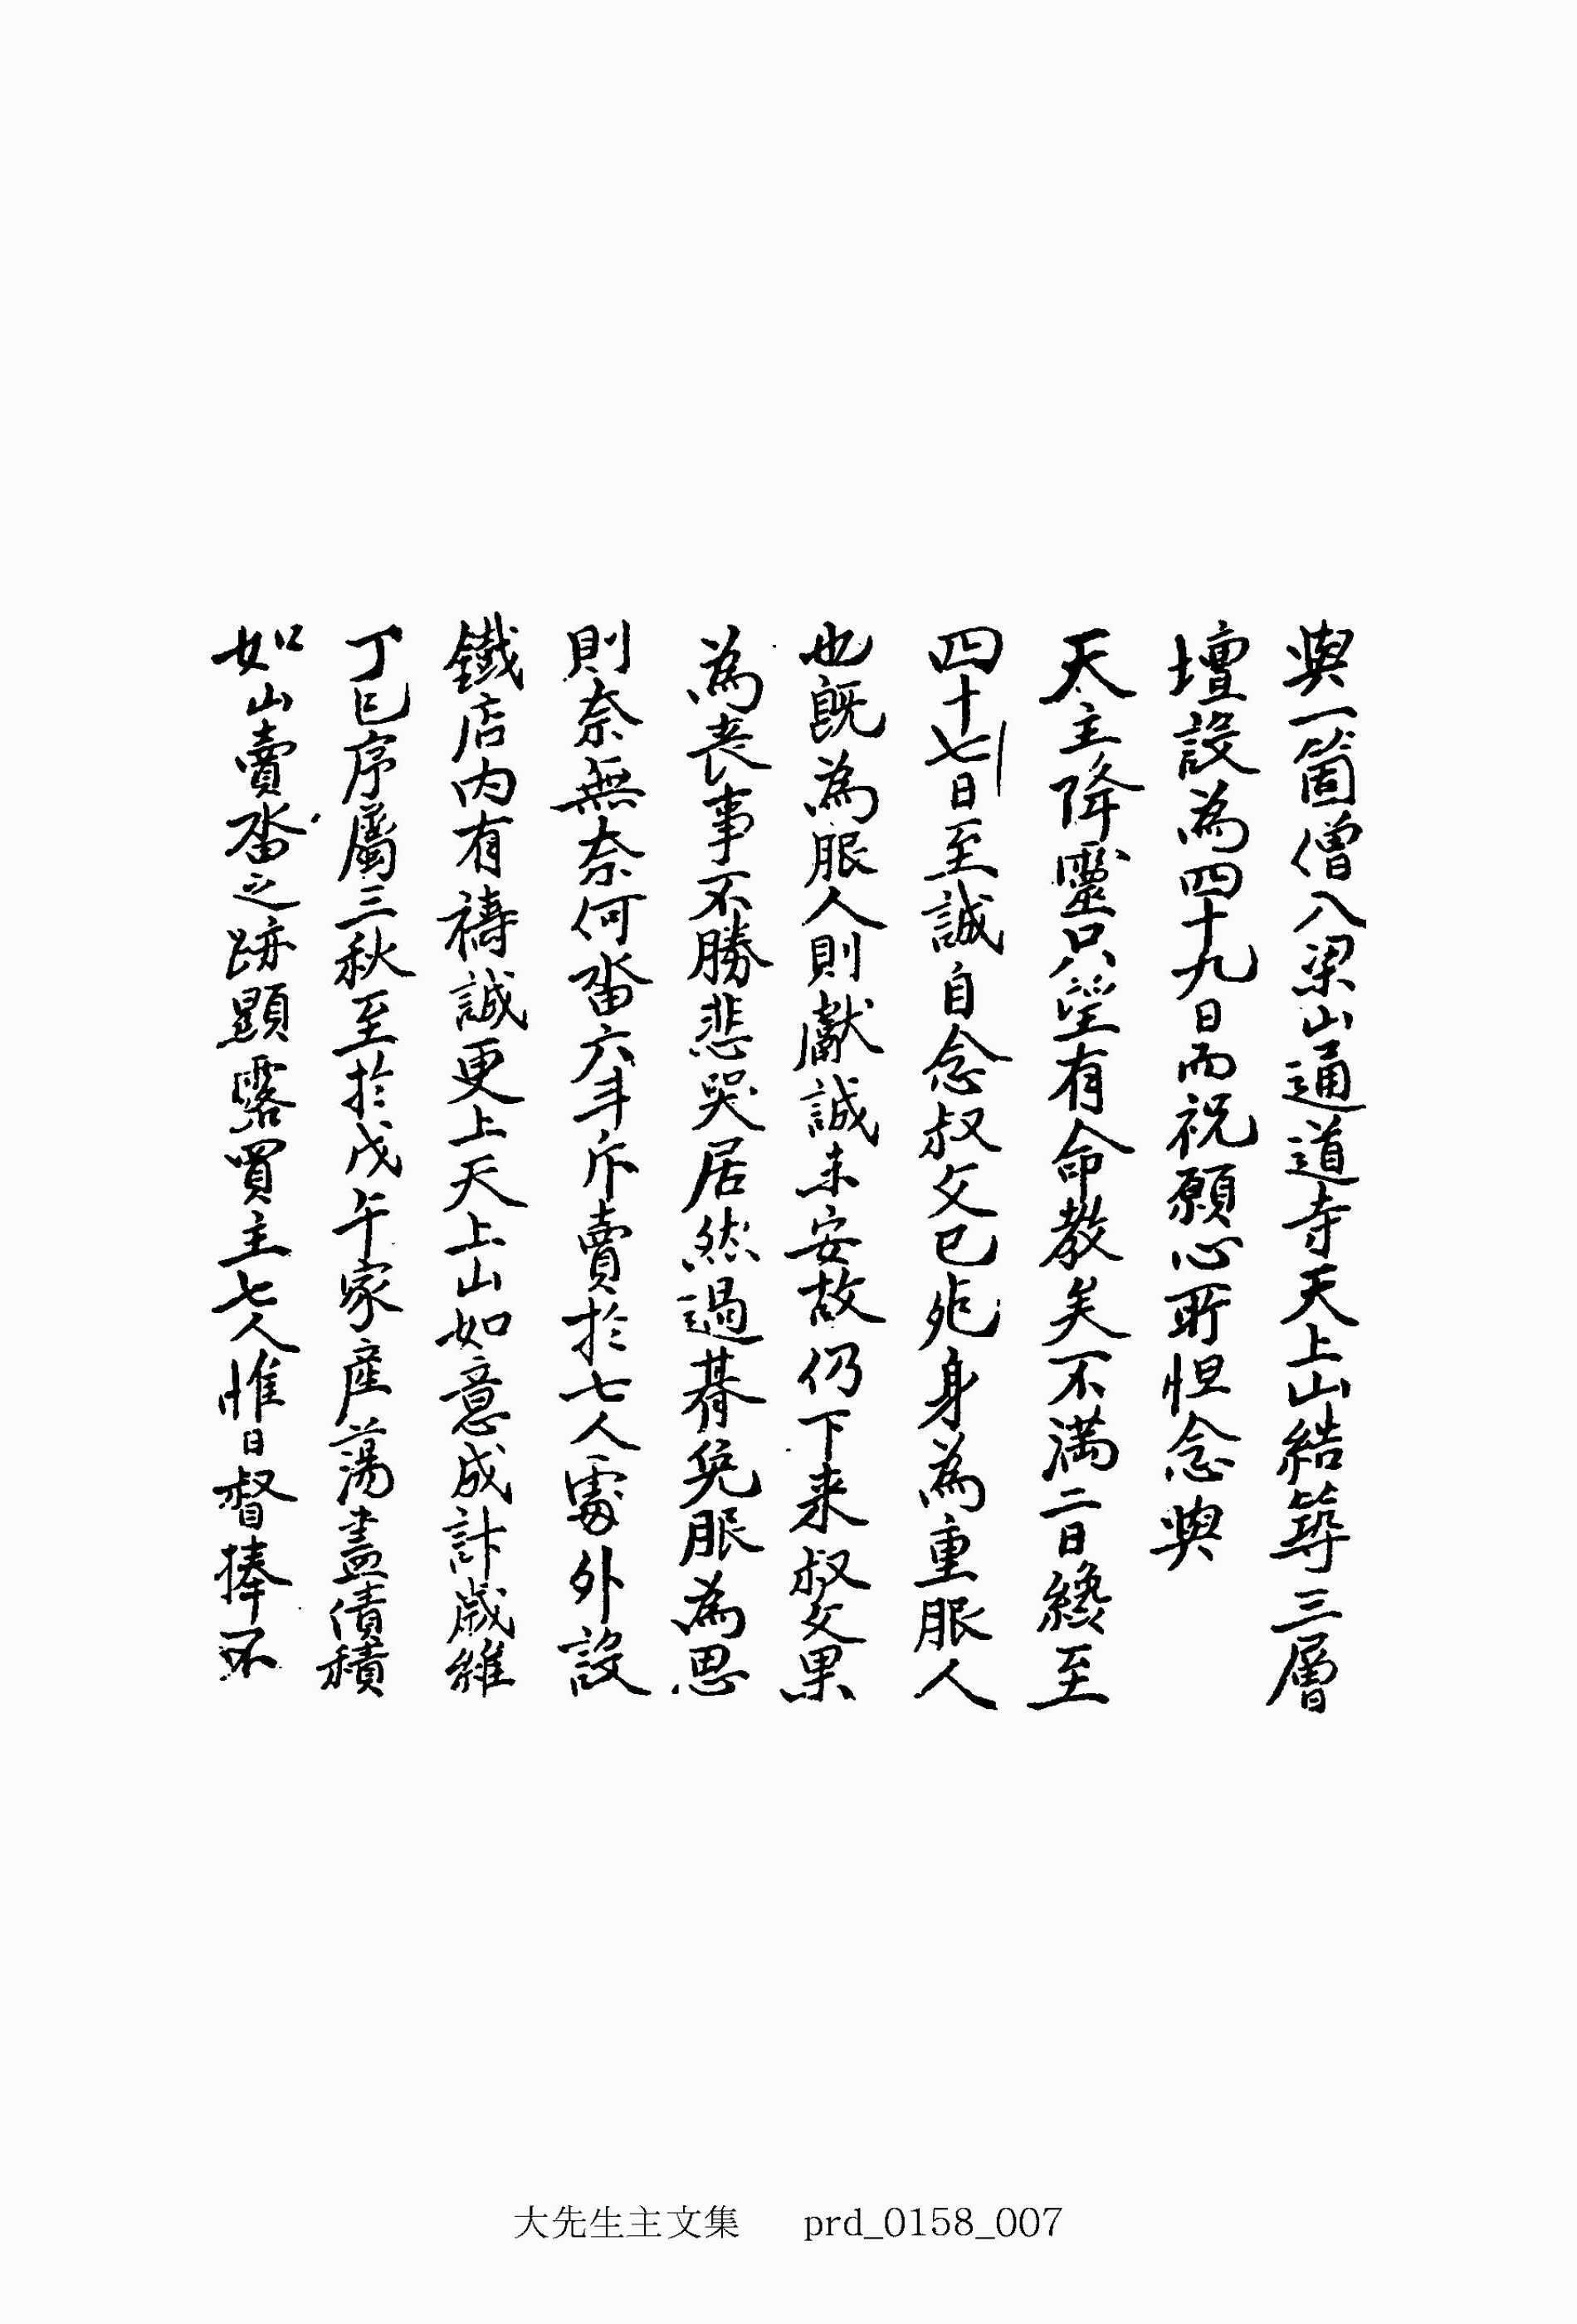 與一箇僧入梁山通道寺天上山結築三層
壇設爲四十九日而祝願心所怛念與
天主降靈只望有命教矣不滿二日纔至
四十七日至誠自念叔父已死身爲重服人
也旣爲服人則獻誠未安故仍下来叔父果
爲喪事不勝悲哭居然過朞免服爲思
則奈無奈何畓六斗斥賣於七人處外設
鐵店内有禱誠更上天上山如意成計歲維
丁巳序屬三秋至於戊午家産蕩盡債積
如山賣畓之跡顯露買主七人惟日督捧不
大先生主文集 prd_0158_007